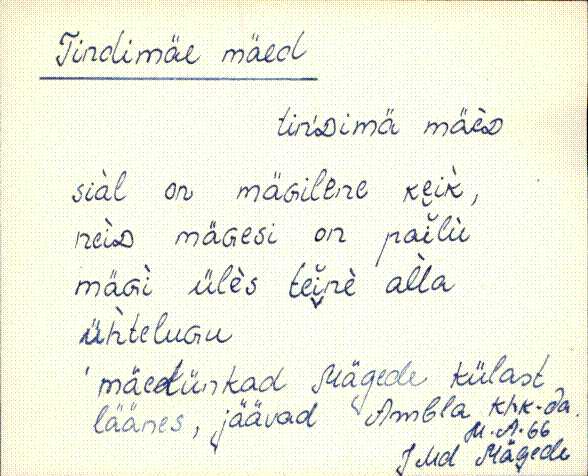 Tindimäe mäed
tińDimä mäèD
siàl on mägilene keik̀,
neìD mägesi on pailù
mägì ülès teinè alla
ühtelugu
mäed künkad Mägede külast
läänes, jäävad Ambla khk-da.
M.A.66
JMd Mägede